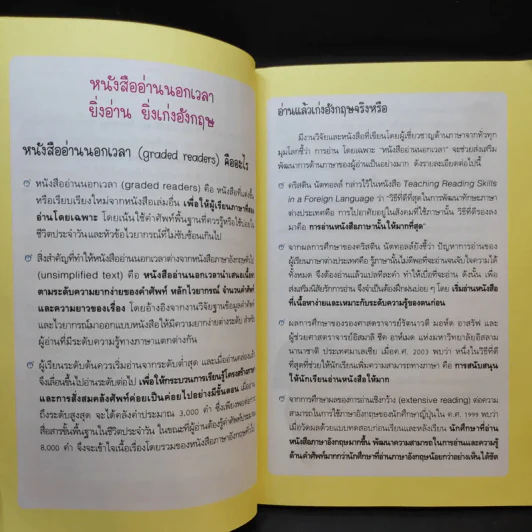 หนังสืออ่านนอกเวลา
ยิ่งอ่าน ยิ่งเก่งอังกฤษ
หนังสืออ่านนอกเวลา (graded readers) คืออะไร
หนังสืออ่านนอกเวลา (graded readers) คือ หนังสือที่แต่งขึ้น
หรือเรียบเรียงใหม่จากหนังสือเล่มอื่น เพื่อให้ผู้เรียนภาษาที่สอง
อ่านโดยเฉพาะ โดยเน้นใช้คำศัพท์พื้นฐานที่ควรรู้หรือใช้บ่อยใน
ชีวิตประจำวันและหัวข้อไวยากรณ์ที่ไม่ซับซ้อนเกินไป
สิ่งสำคัญที่ทำให้หนังสืออ่านนอกเวลาต่างจากหนังสือภาษาอังกฤษทั่วไป
(unsimplified text) คือ หนังสืออ่านนอกเวลานำเสนอเนื้อหา
ตามระดับความยากง่ายของคำศัพท์ หลักไวยากรณ์ จำนวนคำศัพท์
และความยาวของเรื่อง โดยอ้างอิงจากงานวิจัยฐานข้อมูลคำศัพท์
และไวยากรณ์มาออกแบบหนังสือให้มีความยากง่ายต่างระดับ สำหรับ
ผู้อ่านที่มีระดับความรู้ทางภาษาแตกต่างกัน
ผู้เรียนระดับต้นควรเริ่มอ่านจากระดับต่ำสุด และเมื่ออ่านคล่องแล้ว
จึงเลื่อนขึ้นไปอ่านระดับต่อไป เพื่อให้กระบวนการเรียนรู้โครงสร้างภาษา
และการสั่งสมคลังศัพท์ค่อยเป็นค่อยไปอย่างมีขั้นตอน เมื่ออ่าน
ถึงระดับสูงสุด จะได้คลังคำประมาณ 3,000 คำ ซึ่งเพียงพอต่อการ
สื่อสารขั้นพื้นฐานในชีวิตประจำวัน ในขณะที่ผู้อ่านต้องรู้คำศัพท์ประมาณ
8,000 คำ จึงจะเข้าใจเนื้อเรื่องโดยรวมของหนังสือภาษาอังกฤษทั่วไป
อ่านแล้วเก่งอังกฤษจริงหรือ
มีงานวิจัยและหนังสือที่เขียนโดยผู้เชี่ยวชาญด้านภาษาจากทั่วทุก
มุมโลกชี้ว่า การอ่าน โดยเฉพาะ "หนังสืออ่านนอกเวลา" จะช่วยส่งเสริม
พัฒนาการด้านภาษาของผู้อ่านเป็นอย่างมาก ดังรายละเอียดต่อไปนี้
คริสติน นัตทอลล์ กล่าวไว้ในหนังสือ Teaching Reading Skills
in a Foreign Language ว่า "วิธีที่ดีที่สุดในการพัฒนาทักษะภาษา
ต่างประเทศคือ การไปอาศัยอยู่ในสังคมที่ใช้ภาษานั้น วิธีที่ดีรองลง
มาคือ การอ่านหนังสือภาษานั้นให้มากที่สุด"
จากผลการศึกษาของคริสติน นัตทอลล์ยังชี้ว่า ปัญหาการอ่านของ
ผู้เรียนภาษาต่างประเทศคือ รู้ภาษานั้นไม่ดีพอที่จะอ่านจนจับใจความได้
ทั้งหมด จึงต้องอ่านแล้วแปลทีละคำ ทำให้เบื่อที่จะอ่าน ดังนั้น เพื่อ
ส่งเสริมนิสัยรักการอ่าน จึงจำเป็นต้องฝึกฝนบ่อย ๆ โดย เริ่มอ่านหนังสือ
ที่เนื้อหาง่ายและเหมาะกับระดับความรู้ของตนก่อน
ผลการศึกษาของรองศาสตราจารย์รัตนาวตี มอห์ด อาสรัฟ และ
ผู้ช่วยศาสตราจารย์อิสมาลี ชีค อาห์หมัด แห่งมหาวิทยาลัยอิสลาม
นานาชาติ ประเทศมาเลเซีย เมื่อ ค.ศ. 2003 พบว่า หนึ่งในวิธีที่ดี
ที่สุดที่ช่วยให้นักเรียนเพิ่มความสามารถทางภาษา คือ การสนับสนุน
ให้นักเรียนอ่านหนังสือให้มาก
จากการศึกษาผลของการอ่านเชิงกว้าง (extensive reading) ต่อความ
สามารถในการใช้ภาษาอังกฤษของนักศึกษาญี่ปุ่นใน ค.ศ. 1999 พบว่า
เมื่อวัดผลด้วยแบบทดสอบก่อนเรียนและหลังเรียน นักศึกษาที่อ่าน
หนังสือภาษาอังกฤษมากขึ้น พัฒนาความสามารถในการอ่านและความรู้
ด้านคำศัพท์มากกว่านักศึกษาที่อ่านภาษาอังกฤษน้อยกว่าอย่างเห็นได้ชัด